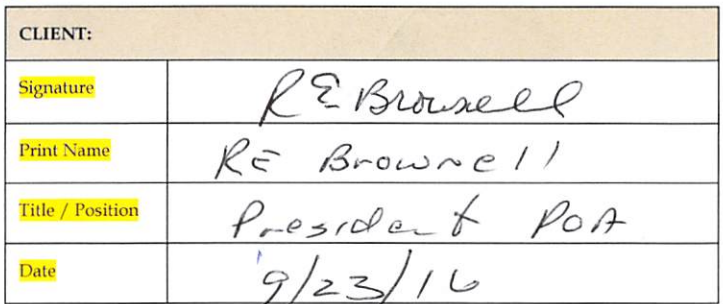 CLIENT:
Signature RE Brownell
Print Name RE Brownell
Title / Position President POA
Date 9/23/16